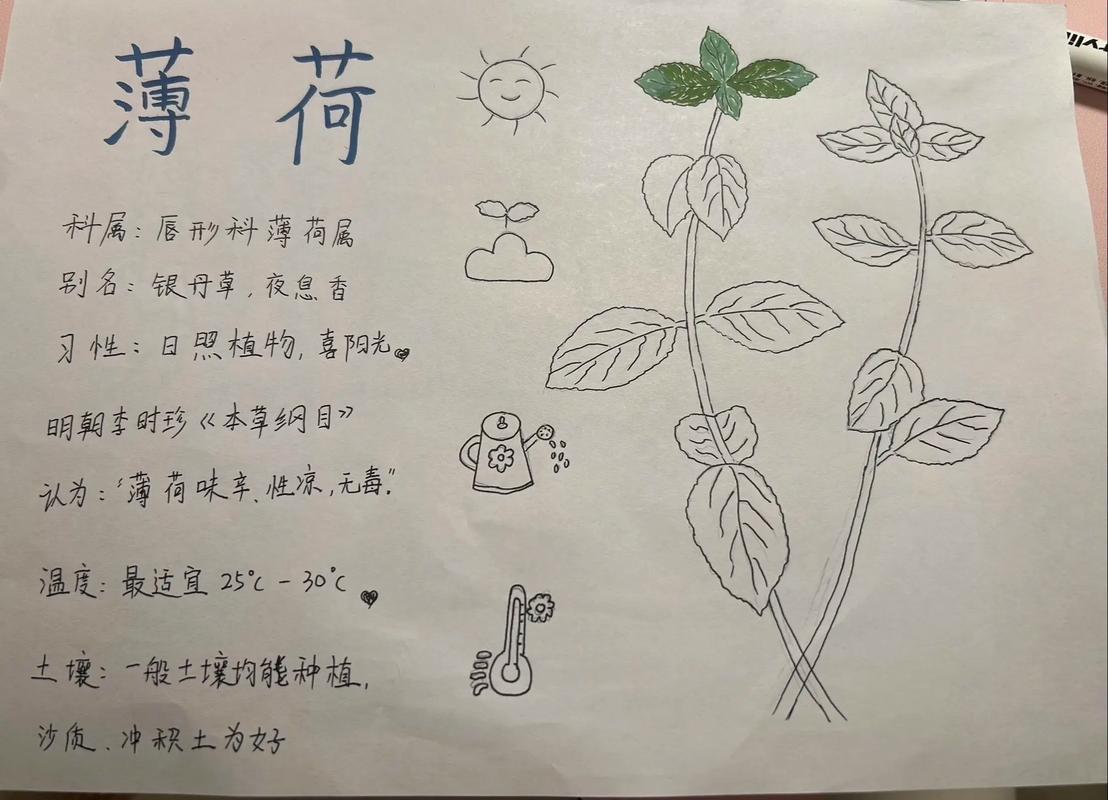 薄荷
科属：唇形科薄荷属
别名：银丹草，夜息香
习性：日照植物，喜阳光。
明朝李时珍《本草纲目》
认为：“薄荷味辛、性凉，无毒。”
温度：最适宜 25℃－30℃
土壤：一般土壤均能种植，
沙质、冲积土为好